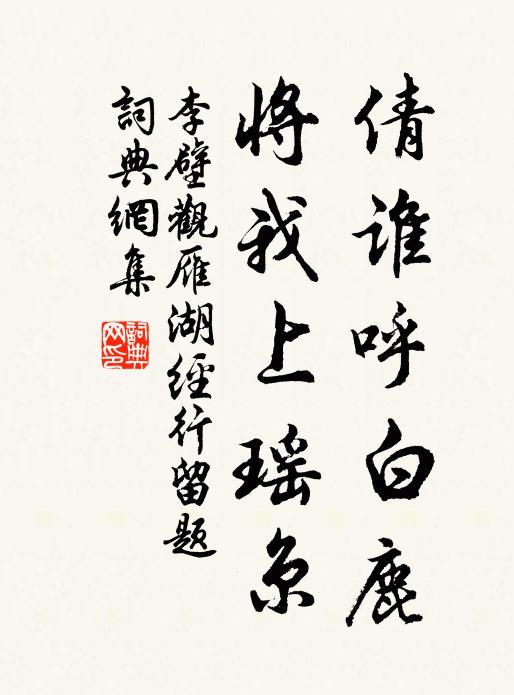 倩谁呼白鹿
将我上瑶京
李壁觀雁湖經行留题
詞典網集
詞典网印